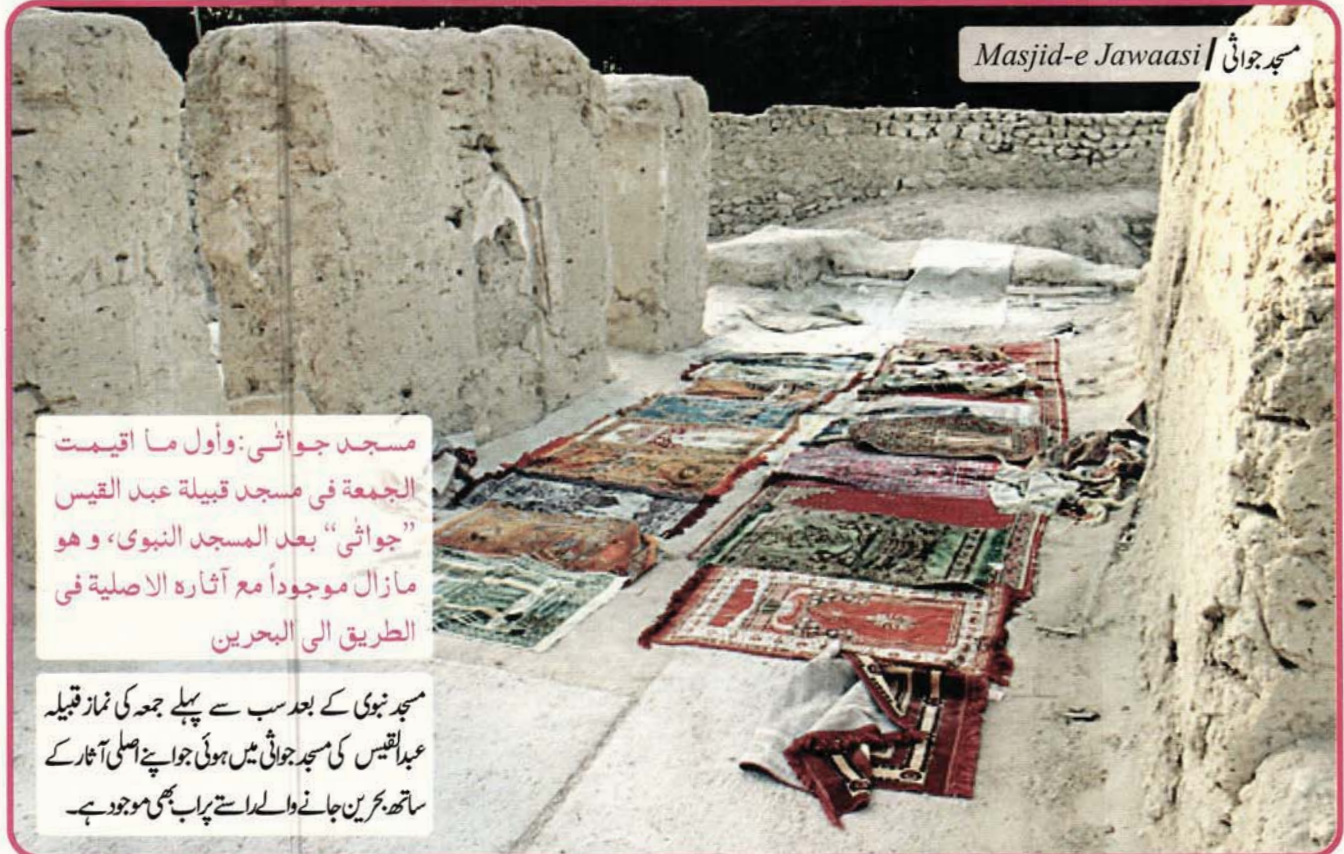 Masjid-e Jawaasi | مسجد جواثی
مسجد جواثٰی:وأول ما اقیمت
الجمعة فی مسجد قبیلة عبد القیس
”جواثٰی“ بعد المسجد النبوی، و هو
مازال موجوداً مع آثاره الاصلیة فی
الطریق الی البحرین
مسجد نبوی کے بعد سب سے پہلے جمعہ کی نماز قبیلہ
عبدالقیس کی مسجد جواثی میں ہوئی جو اپنے اصلی آثار کے
ساتھ بحرین جانے والے راستے پر اب بھی موجود ہے۔